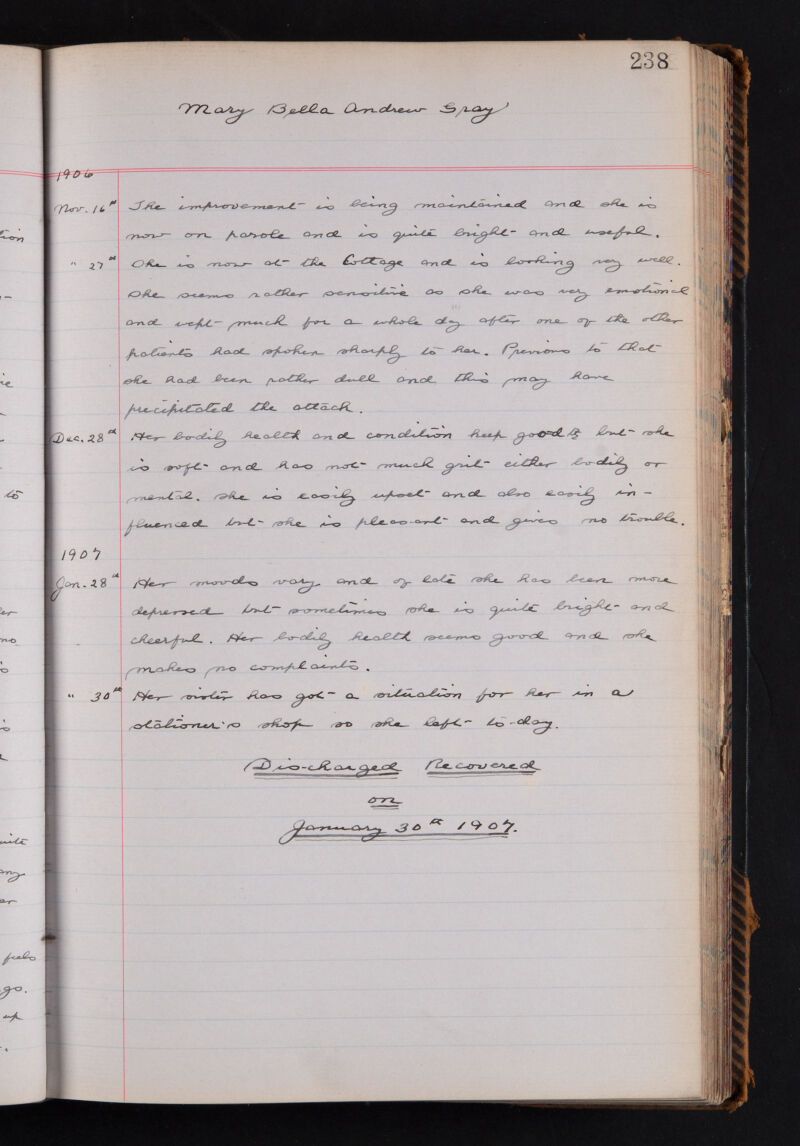 238
Mary Bella Andrew Gray
1906
Nov. 16th The improvement is being maintained and she is
now on parole and is quite bright and useful.
" 27th She is now at the Cottage and is looking very well.
She seems rather sensitive as she was very emotional
and wept much for a whole day after one of the other
patients had spoken sharply to her. Previous to that
she had been rather dull and this may have
precipitated the attack.
Dec. 28th Her bodily health and condition keep good but she
is soft and has not much grit either bodily or
mental. She is easily upset and also easily in-
fluenced but she is pleasant and gives no trouble.
1907
Jan. 28th Her moods vary and of late she has been more
depressed but sometimes she is quite bright and
cheerful. Her bodily health seems good and she
makes no complaints.
" 30th Her sister has got a situation for her in a
stationer's shop so she left to-day.
Discharged Recovered
on
January 30th 1907.